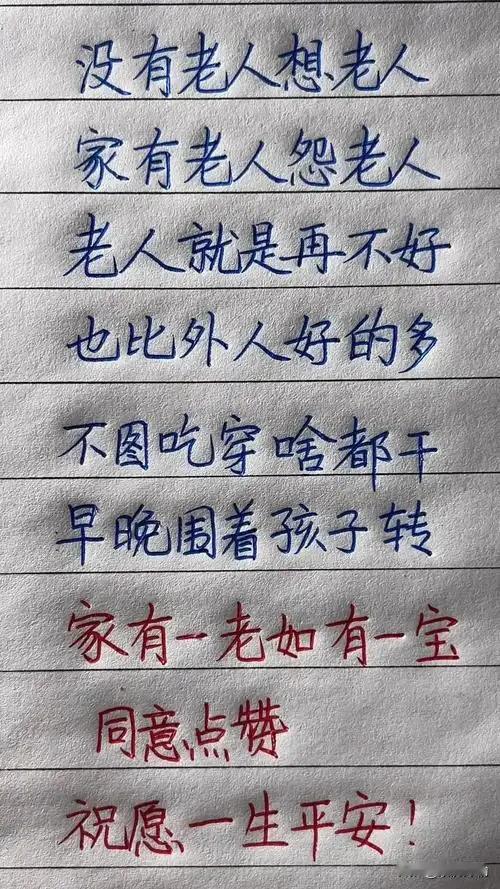 没有老人想老人
家有老人怨老人
老人就是再不好
也比外人好的多
不图吃穿啥都干
早晚围着孩子转
家有一老如有一宝
同意点赞
祝愿一生平安！